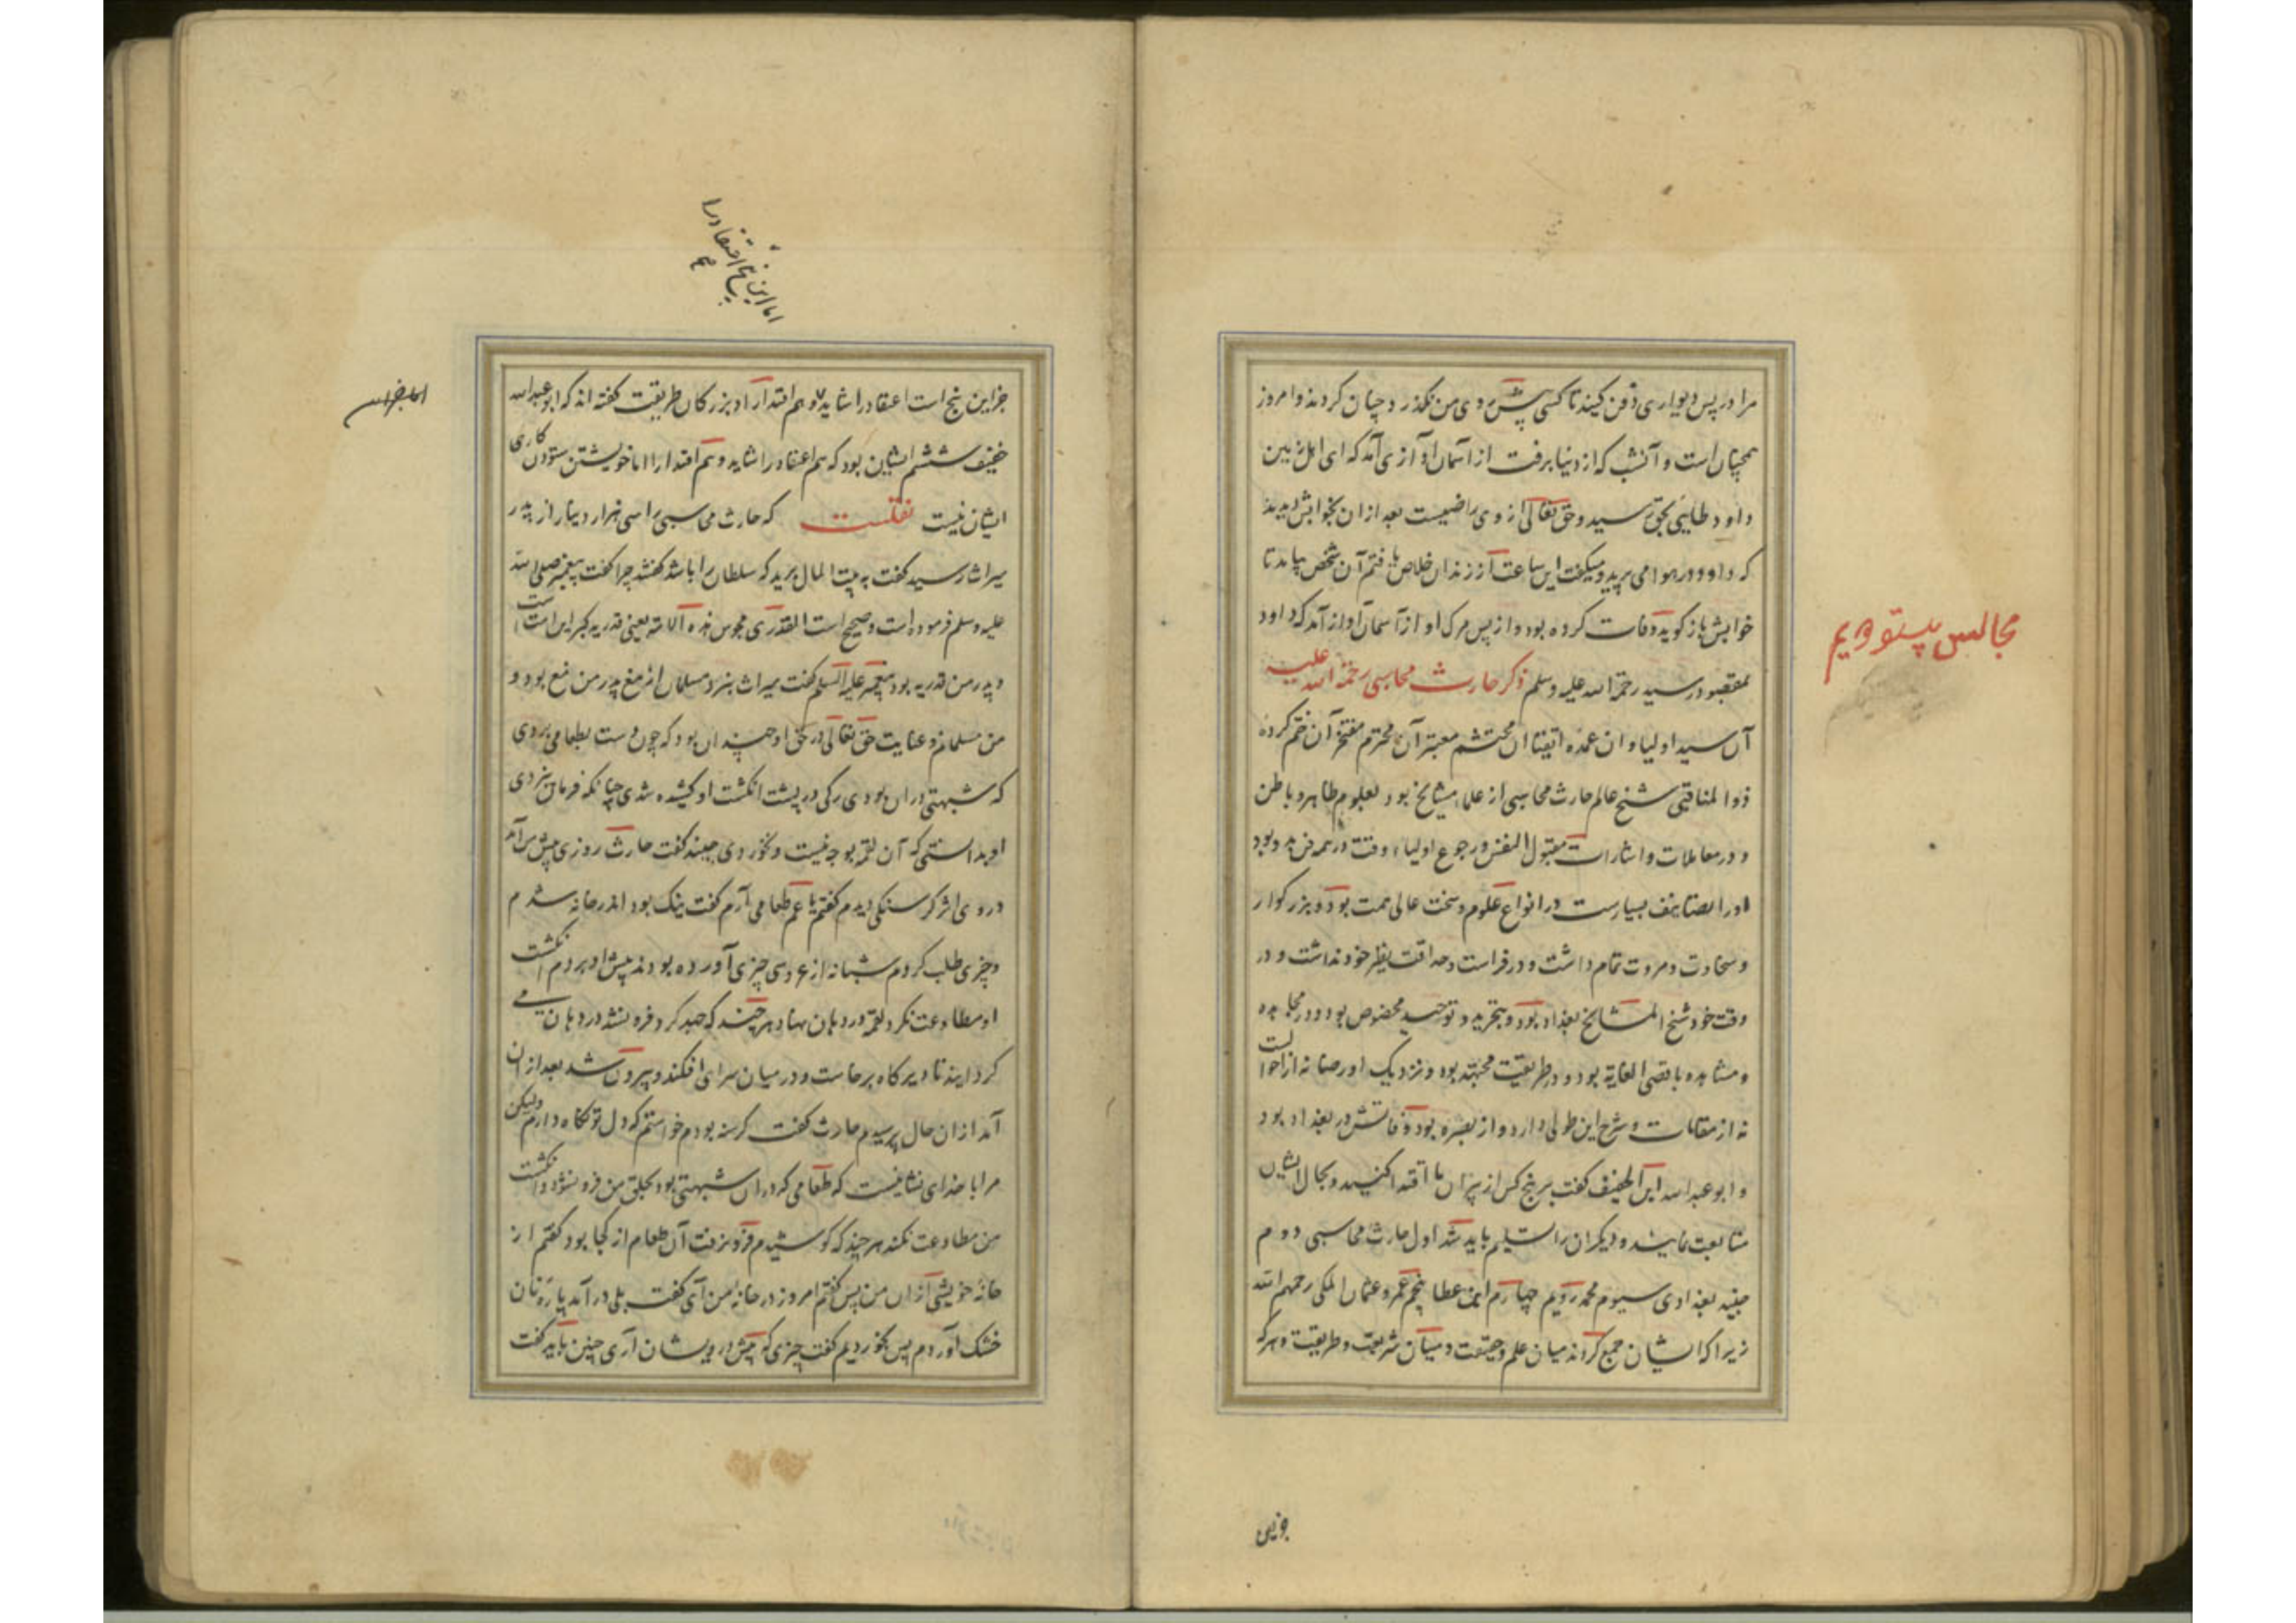 مرا در پس دیواری دفن کنید تا کسی پیش روی من نگذرد و چنان کردند و امروز
همچنان است و آنشب که از دنیا برفت از آسمان آوازی آمد که ای اهل زمین
داود طایی بحق رسید و حق تعالی از وی راضیست بعد از ان بخوابش دیدند
که داود در هوا می پرید و میکفت این ساعت از زندان خلاص یافتم آن شخص بیامد تا
خوابش باز کوید وفات کرده بود و از پس مرک او از آسمان آواز آمد که داود
بمقصود رسید رحمة الله علیه وسلم ذکر حارث محاسبی رحمة الله علیه
مجالس بیستو دویم
آن سید اولیا و ان عمده اتقیا ان محتشم معتبر آن محترم مفتخر آن ختم کرده
ذو المناقبی شیخ عالم حارث محاسبی از علماء مشایخ بود بعلوم ظاهر و باطن
و در معاملات و اشارات مقبول النفس و رجوع اولیاء وقت در همه فن بدو بود
اورا تصانیف بسیارست در انواع علوم و سخت عالی همت بود و بزرکوار
و سخاوت و مروت تمام داشت و در فراست و حذاقت نظیر خود نداشت و در
وقت خود شیخ المشایخ بغداد بود و بتجرید و توحید مخصوص بود و در مجاهده
و مشاهده باقصی الغایة بود و در طریقت مجتهد بود و نزدیک او رضا نه از احوالست
نه از مقامات و شرح این طولی دارد و از بصره بود وفاتش در بغداد بود
و ابو عبدالله ابن الخفیف کفت بر پنج کس از پیران ما اقتدا کنید و بحال ایشان
متابعت نمایید و دیکران را تسلیم باید شد اول حارث محاسبی دوم
جنید بغدادی سیوم محمد رویم چهارم ابن عطا پنجم عمرو عثمان المکی رحمهم الله
زیرا که ایشان جمع کردند میان علم و حقیقت و میان شریعت و طریقت و هرکه
جز این
اما این پنج اعتقاد را
جز این پنج است اعتقاد را شاید و هم اقتدا را و بزرکان طریقت کفته اند که ابو عبدالله
خفیف ششم ایشان بود که هم اعتقاد را شاید و هم اقتدا را اما خویشتن ستودن کاری
ایشان نیست نقلست که حارث محاسبی را سی هزار دینار از پدر
میراث رسید کفت به بیت المال برید که سلطان را باشد کفتند چرا کفت پیغمبر صلی الله
علیه وسلم فرموده است و صحیح است القدری مجوس هذه الامة یعنی قدریه کبر این امت است
و پدر من قدریه بود پیغمبر علیه السلم کفت میراث نبرد مسلمان از مغ پدر من مغ بود و
من مسلمانم و عنایت حق تعالی در حق او چندان بود که چون دست بطعامی بردی
که شبهتی دران بودی رکی در پشت انکشت او کشیده شدی چنانکه فرمان نبردی
او بدانستی که آن لقمه بوجه نیست و نخوردی جنید کفت حارث روزی پیش من آمد
در وی اثر کرسنکی دیدم کفتم یا عم طعامی آرم کفت نیک بود اندر خانه شدم
و چیزی طلب کردم شبانه از عروسی چیزی آورده بودند پیش او بردم انکشت
او مطاوعت نکرد لقمه در دهان نهاد هر چند که جهد کرد فرو نشد در دهان می
کردانید تا دیرکاه برخاست و در میان سرای افکند و بیرون شد بعد از ان
آمد از ان حال پرسیدم حارث کفت کرسنه بودم خواستم که دل تو نکاه دارم ولیکن
مرا با خدای نشانیست که طعامی که دران شبهتی بود بحلق من فرو نشود و انکشت
من مطاوعت نکند هر چند که کوشیدم فرو نرفت آن طعام از کجا بود کفتم از
خانه خویشی ازان من پس کفتم امروز در خانه من آی کفت بلی در آمد پاره نان
خشک آوردم پس بخوردیم کفت چیزی که پیش درویشان آری چنین باید کفت